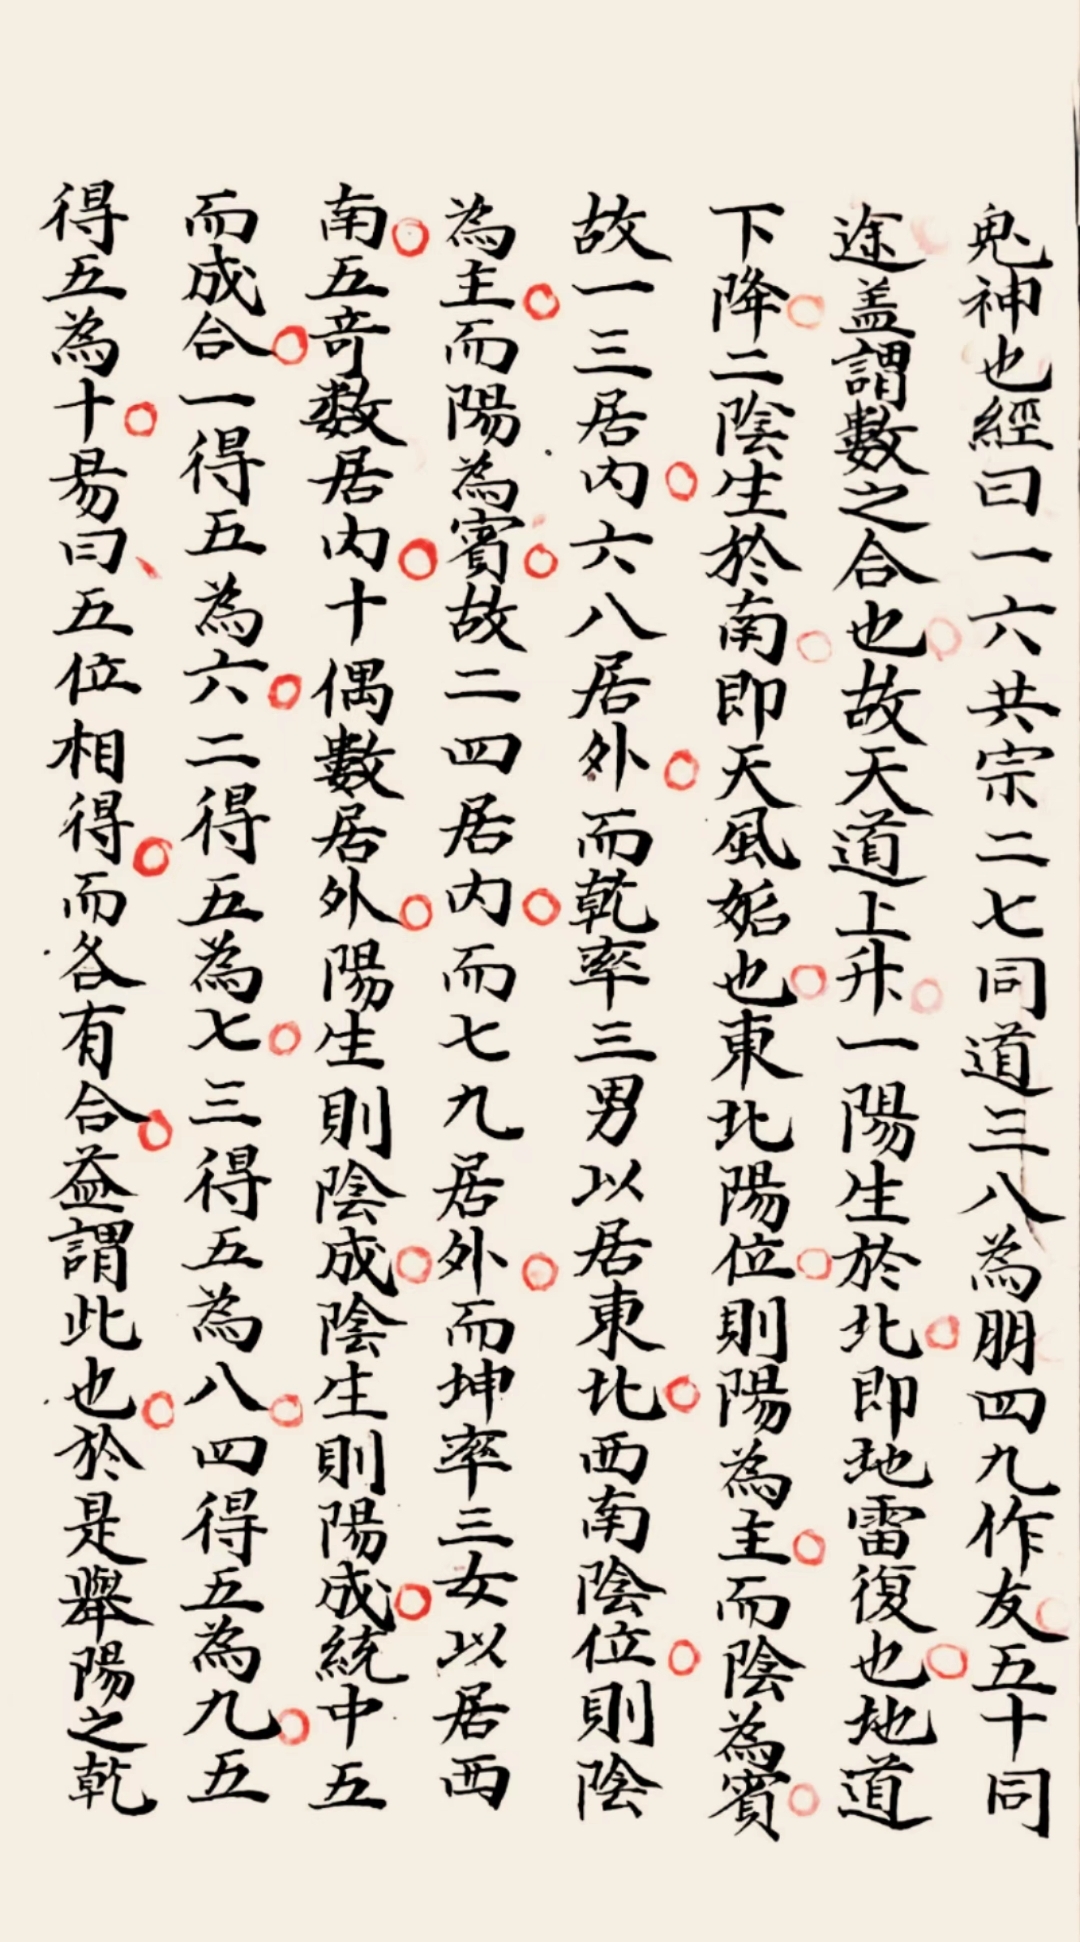 鬼神也經曰一六共宗二七同道三八為朋四九作友五十同
途盖謂數之合也故天道上升一陽生於北即地雷復也地道
下降二陰生於南即天風姤也東北陽位則陽為主而陰為賓
故一三居内六八居外而乾率三男以居東北西南陰位則陰
為主而陽為賓故二四居内而七九居外而坤率三女以居西
南五竒数居内十偶數居外陽生則陰成陰生則陽成統中五
而成合一得五為六二得五為七三得五為八四得五為九五
得五為十昜曰五位相得而各有合益謂此也於是舉陽之乾